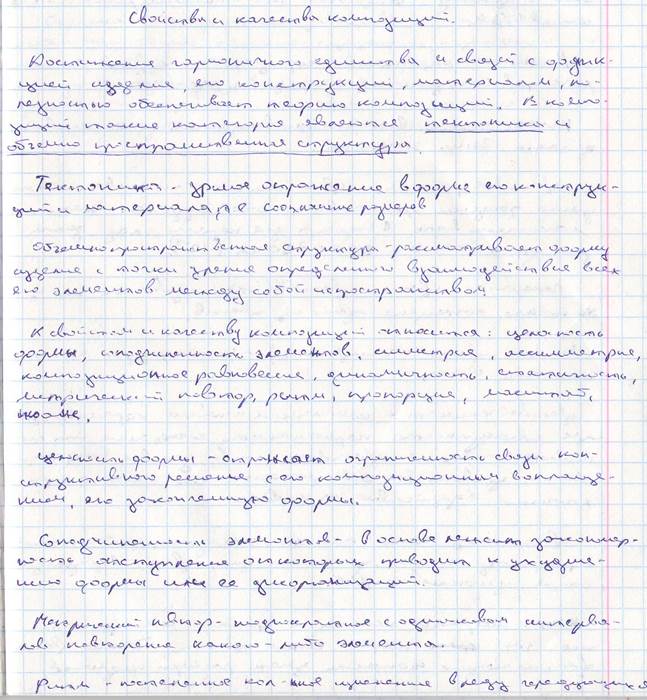 Свойства и качества композиций.
Достижение гармоничного единства и связей с функ-
цией изделия, его конструкций, материалом, по-
лезностью обеспечивает теорию композиций. В компо-
зиций такие категория являются тектоника и
объемно пространственная структура.
Тектоника - зримое отражение в форме его конструк-
ций и материала, т.е соотношение размеров
Объемнопространственная структура - рассматривает форму
изделие с точки зрения определенного взаимодействия всех
его элементов между собой и пространством
К свойствам и качеству композиций относится: целостность
формы, соподчиненность элементов, симметрия, ассимметрия,
композиционное равновесие, динамичность, статичность,
метрический повтор, ритм, пропорция, масштаб,
целостность формы - отражает ограниченность связи кон-
структивного решения с его композиционным воплоще-
нием, его законченную формы.
Соподчиненность элементов - в основе лежит закономер-
ность отступление от которых приводит к ухудше-
нию формы или ее дисорганизаций.
Метрический повтор - с одинаковым интерва-
лов повторение какого-либо элемента.
Ритм - постепенное кол-ное изменение в ряду чередующихся